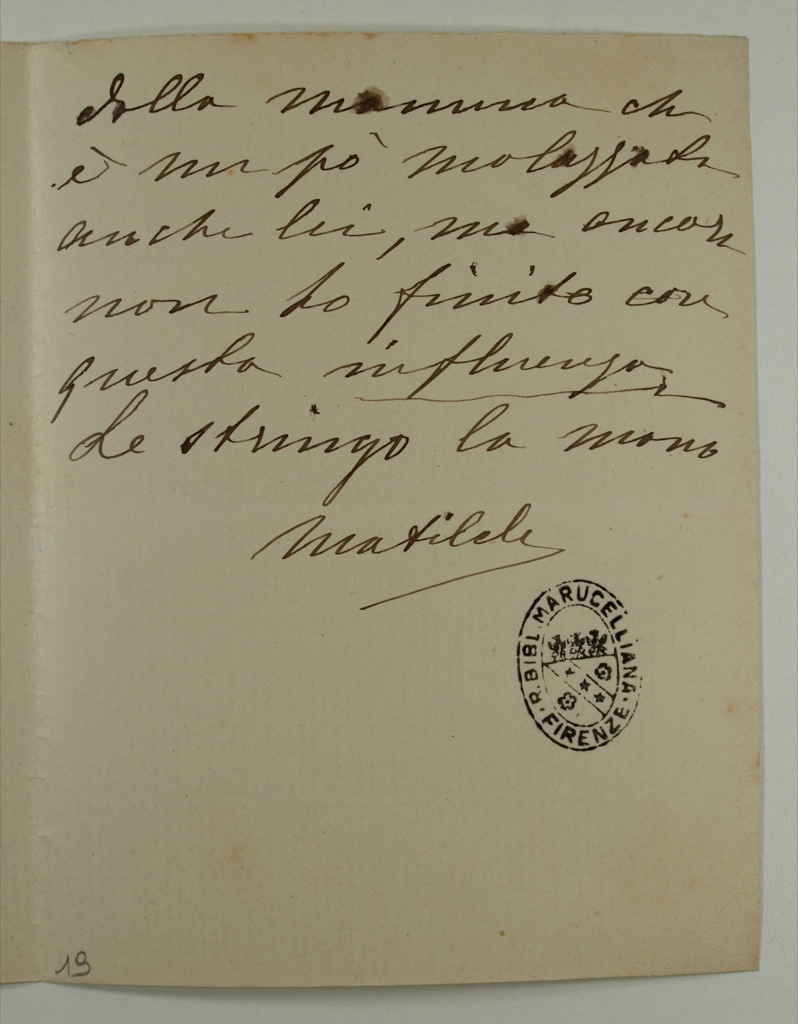 dalla mamma che
è un pò malazzata
anche lei, ma ancora
non ho finito con
questa influenza,
Le stringo la mano
Matilde
R. BIBL. MARUCELLIANA · FIRENZE ·
19